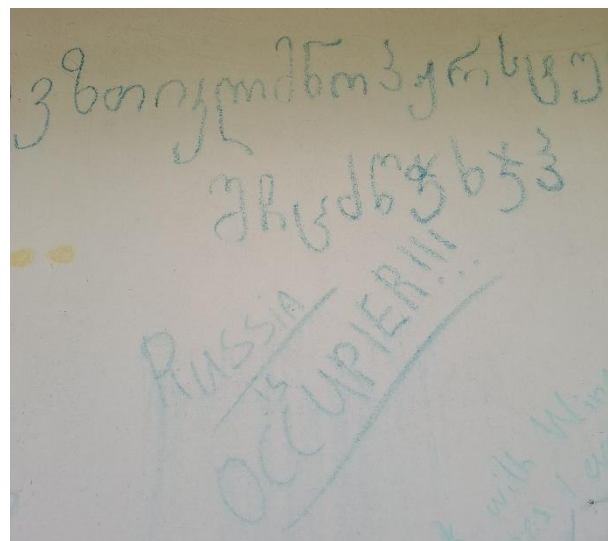 ვზთიკლმნოპჟრსტუ
შჩცძწჭხჯჰ
RUSSIA
is
OCCUPIER!!!
with